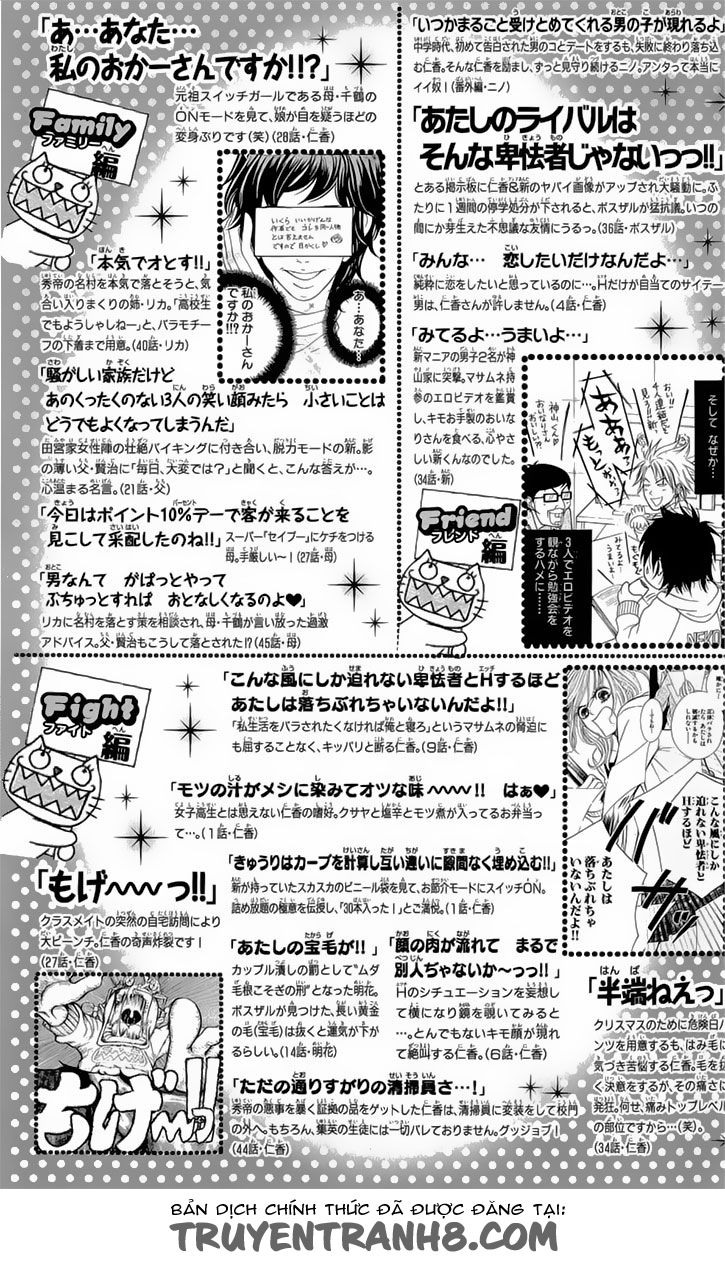 「あ…あなた…
私のおかーさんですか!!?」
元祖スイッチガールである母・千鶴の
ONモードを見て、娘が目を疑うほどの
変身ぶりです(笑)(28話・仁香)
Family
ファミリー
編
いくら いいかげんな
作者でも コレを同一人物
とは言えません
ですので目かくし♡
あ…あなた…
私のおかーさん
ですか!!?
「本気でオとす!!」
秀帝の名村を本気で落とそうと、気
合い入りまくりの姉・リカ。「高校生
でもようしゃしねーっ」と、バラモチー
フの下着まで用意。(40話・リカ)
「騒がしい家族だけど
あのくったくのない3人の笑い顔みたら 小さいことは
どうでもよくなってしまうんだ」
田宮家女性陣の壮絶バイキングに付き合い、脱力モードの新。影
の薄い父・賢治に「毎日、大変では?」と聞くと、こんな答えが…。
心温まる名言。(21話・父)
「今日はポイント10%デーで客が来ることを
見こして采配したのね!!」
スーパー「セイブー」にケチをつける
母。手厳しい〜!(27話・母)
「男なんて がばっとやって
ぶちゅっとすれば おとなしくなるのよ♥」
リカに名村を落とす策を相談され、母・千鶴が言い放った過激
アドバイス。父・賢治もこうして落とされた!?(45話・母)
「いつかまるごと受けとめてくれる男の子が現れるよ
中学時代、初めて告白された男のコとデートをするも、失敗に終わり落ち込
む仁香。そんな仁香を励まし、ずっと見守り続けるニノ。アンタって本当に
イイ奴!(番外編・ニノ)
「あたしのライバルは
そんな卑怯者じゃないっっ!!」
とある掲示板に仁香&新のヤバイ画像がアップされ大騒動に。ふ
たりに1週間の停学処分が下されると、ボスザルが猛抗議。いつの
間にか芽生えた不思議な友情にうるっ。(36話・ボスザル)
「みんな… 恋したいだけなんだよ…」
純粋に恋をしたいと思っているのに…。Hだけが目当てのサイテー
男は、仁香さんが許しません。(4話・仁香)
「みてるよ…うまいよ…」
新マニアの男子2名が神
山家に突撃。マサムネ持
参のエロビデオを鑑賞
し、キモお手製のおいな
りさんを食べる、心やさ
しい新くんなのでした。
(34話・新)
そして なぜか…
神山くん
おいなりさん
おいしい?
あああっ
もっとぉっ
みてるよ…
うまいよ…
もぐもぐ
3人でエロビデオを
観ながら勉強会を
するハメに……
Friend
フレンド
編
Fight
ファイト
編
「こんな風にしか迫れない卑怯者とHするほど
あたしは落ちぶれちゃいないんだよ!!」
「私生活をバラされたくなければ俺と寝ろ」というマサムネの脅迫に
も屈することなく、キッパリと断る仁香。(9話・仁香)
「モツの汁がメシに染みてオツな味〜〜〜!! はぁ♥」
女子高生とは思えない仁香の嗜好。クサヤと塩辛とモツ煮が入ってるお弁当
って…。(1話・仁香)
こんな風にしか
迫れない卑怯者と
Hするほど
あたしは
落ちぶれちゃ
いないんだよ!!
「きゅうりはカーブを計算し互い違いに隙間なく埋め込む!!」
新が持っていたスカスカのビニール袋を見て、お節介モードにスイッチON。
詰め放題の極意を伝授し、「30本入った!」とご満悦。(1話・仁香)
「もげ〜〜〜っ!!」
クラスメイトの突然の自宅訪問により
大ピーンチ。仁香の奇声炸裂です!
(27話・仁香)
もげ〜〜っ!!
「あたしの宝毛が!!」
カップル潰しの罰として“ムダ
毛根こそぎの刑”となった明花。
ボスザルが見つけた、長い黄金
の毛(宝毛)は抜くと運気が下が
るらしい。(14話・明花)
「顔の肉が流れて まるで
別人ぢゃないか〜っっ!!」
Hのシチュエーションを妄想し
て横になり鏡を覗いてみると
…。とんでもないキモ顔が現れ
て絶叫する仁香。(6話・仁香)
「ただの通りすがりの清掃員さ…!」
秀帝の悪事を暴く証拠の品をゲットした仁香は、清掃員に変装をして校門
の外へ。もちろん、集英の生徒には一切バレておりません。グッジョブ!
(44話・仁香)
「半端ねえっ
クリスマスのために危険日パ
ンツを用意するも、はみ毛に
気づき苦悩する仁香。毛を抜
く決意をするが、その痛さに
発狂。何せ、痛みトップレベル
の部位ですから…(笑)。
(34話・仁香)
BẢN DỊCH CHÍNH THỨC ĐÃ ĐƯỢC ĐĂNG TẠI:
TRUYENTRANH8.COM